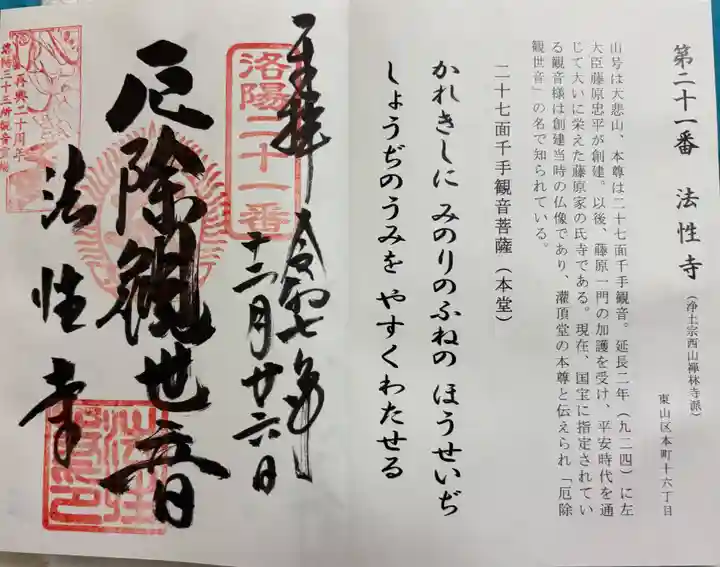 第二十一番　法性寺（浄土宗西山禅林寺派）
東山区本町十六丁目
山号は大悲山、本尊は二十七面千手観音。延長二年（九二四）に左
大臣藤原忠平が創建。以後、藤原一門の加護を受け、平安時代を通
じて大いに栄えた藤原家の氏寺である。現在、国宝に指定されてい
る観音様は創建当時の仏像であり、灌頂堂の本尊と伝えられ「厄除
観世音」の名で知られている。
二十七面千手観音菩薩（本堂）
かれきしに みのりのふねの ほうせいぢ
しょうぢのうみを やすくわたせる
奉拝 令和七年
十二月廿六日
洛陽二十一番
厄除観世音
法性寺
再興二十周年
洛陽三十三所観音霊場